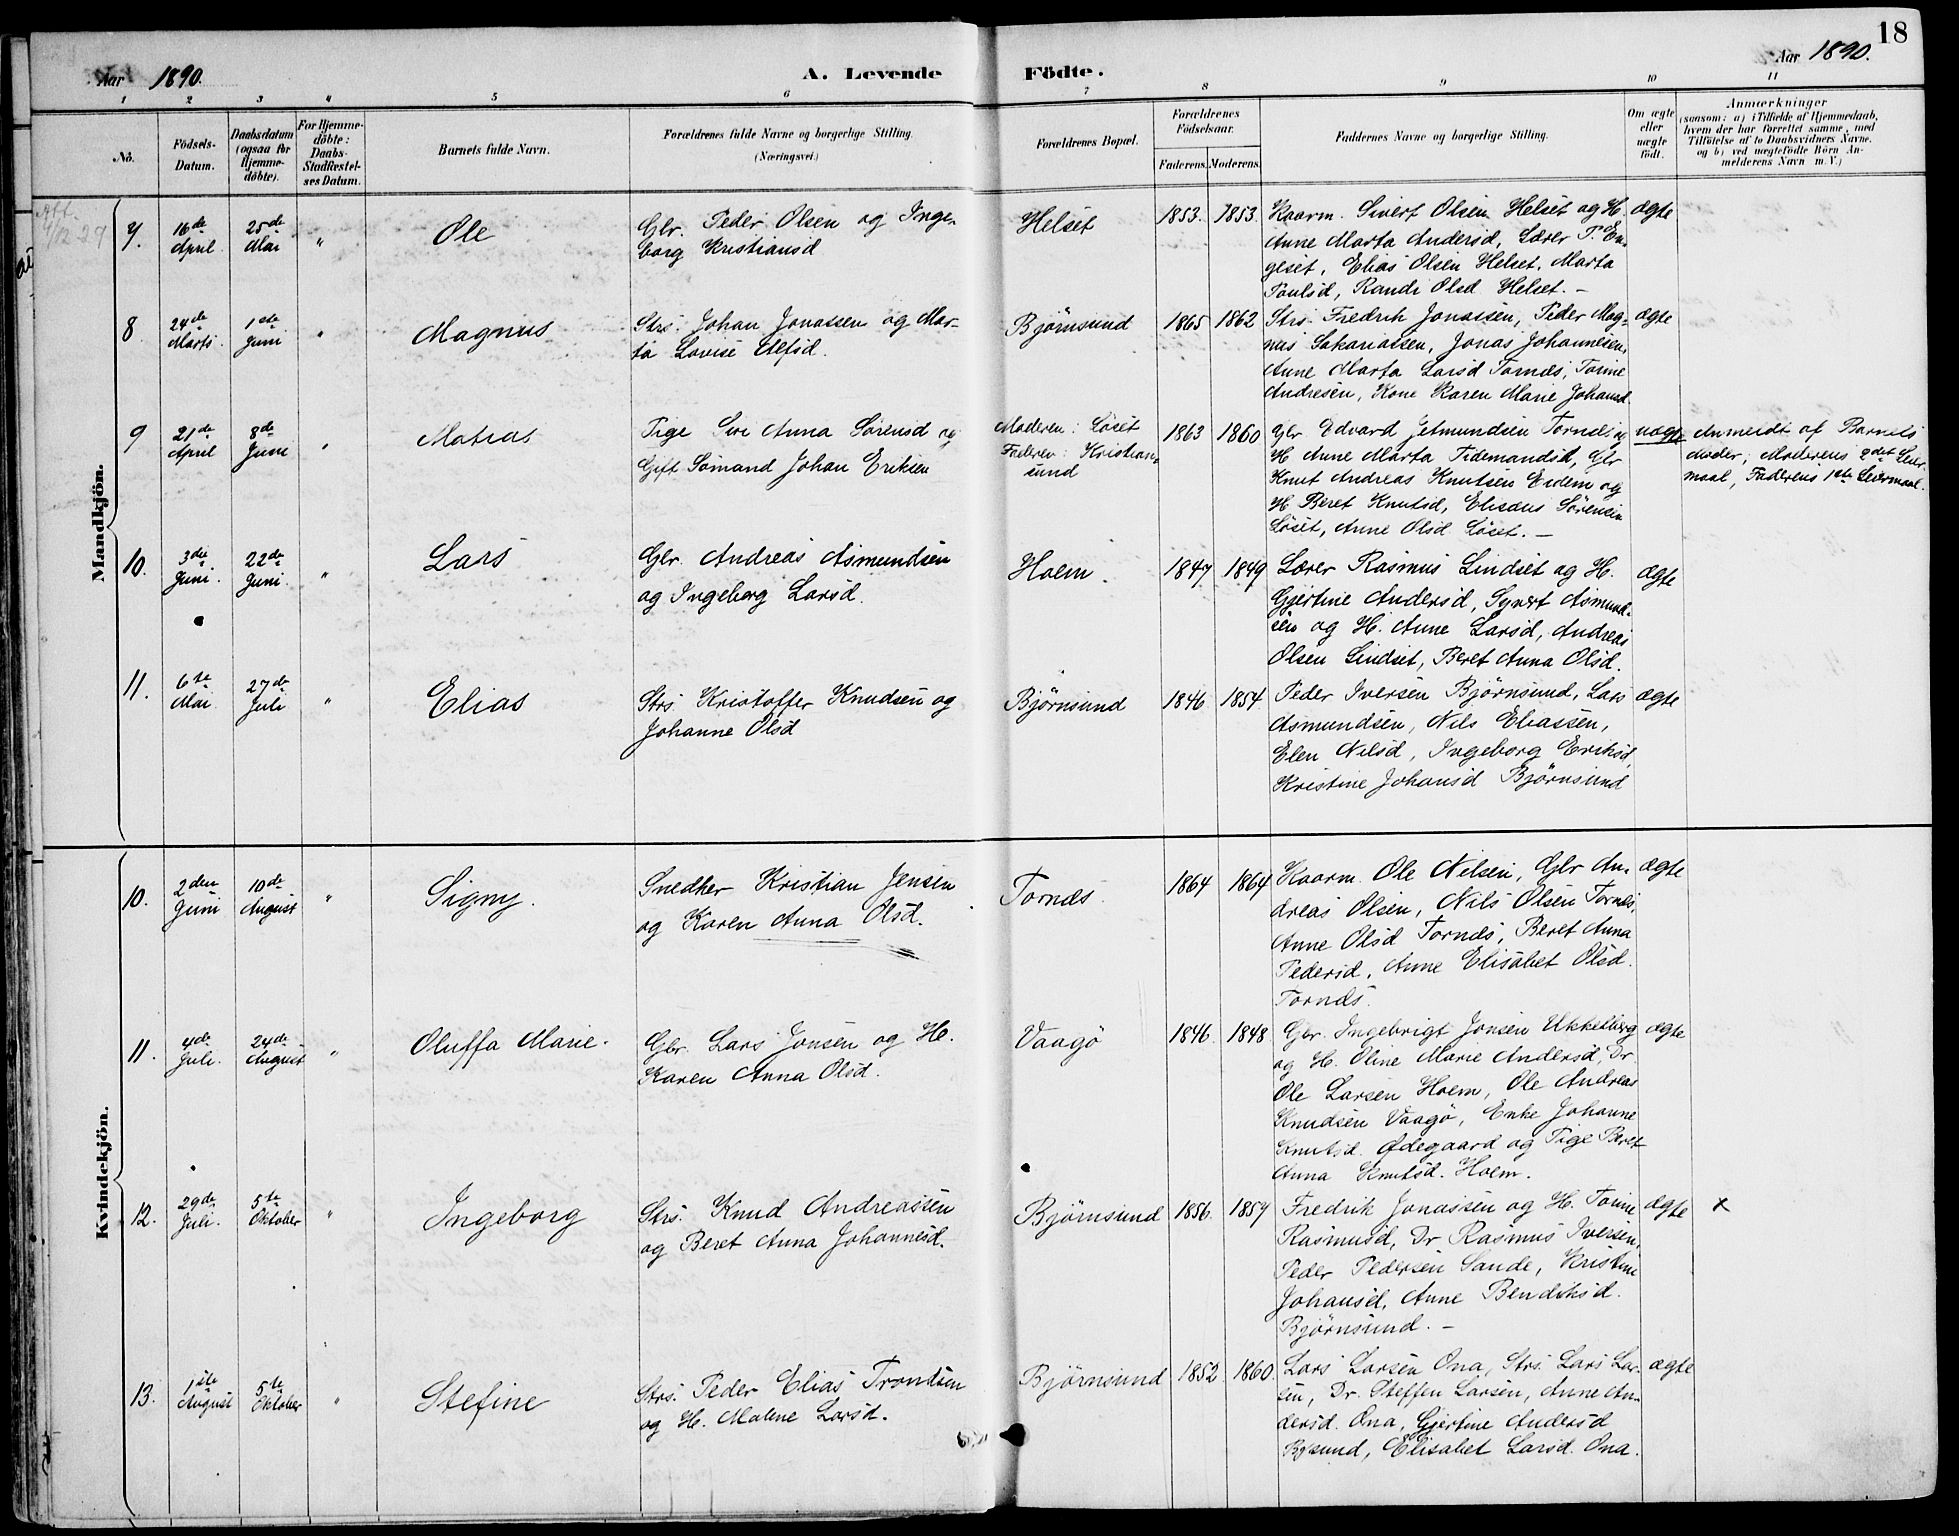 18
Aar 1890. A. Levende Födte. Aar 1890.
1 2 3 4 5 6 7 8 9 10 11
No.
Födsels-
Datum.
Daabsdatum
(ogsaa for
Hjemme-
döbte).
For Hjemme-
döbte:
Daabs-
Stadfæstel-
ses Datum.
Barnets fulde Navn.
Forældrenes fulde Navne og borgerlige Stilling.
(Næringsvei.)
Forældrenes Bopæl.
Forældrenes
Födselsaar.
Faderens. Moderens.
Faddernes Navne og borgerlige Stilling.
Om ægte
eller
uægte
födt.
Anmærkninger
(saasom: a) i Tilfælde af Hjemmedaab,
hvem der har forrettet samme, med
Tilföielse af to Daabsvidners Navne.
og b) ved uægtefödte Börn An-
melderens Navn m. V.)
Mandkjön.
Att.
4/12 29
7.
16de
April
25de
Mai
"
Ole
Gbr. Peder Olsen og Inge-
borg Kristiansd
Helset
1853. 1853.
Kaarm. Sivert Olsen Helset og H.
Anne Marta Andersd, Lærer P. En-
geset, Elias Olsen Helset, Marta
Paulsd, Randi Olsd Helset. -
ægte
8
24de
Marts.
1ste
Juni
"
Magnus
Strs. Johan Jonassen og Mar-
ta Lovise Alfsd.
Bjørnsund
1865 1862
Strs. Fredrik Jonassen, Peder Mag-
nus Sakariassen, Jonas Johannesen,
Anne Marta Larsd Tornes, Torine
Andresen, Kone Karen Marie Johansd.
ægte
9
21de
April
8de
Juni
"
Matias
Pige Siri Anna Sørensd og
Gift Sømand Johan Eriksen
Moderen: Løset
Faderen: Kristian-
sund
1863 1860
Gbr Edvard Jetmundsen Tornes og
H. Anne Marta Tidemandsd, Gbr
Knut Andreas Knutsen Eidem og
H. Beret Knutsd, Elisæus Sørensen
Løset, Anne Olsd Løset. -
uægte
Anmeldt af Barnets
Moder; Moderens 2det Leier-
maal, Faderens 1ste Leiermaal.
10.
3die
Juni.
22de
Juni.
"
Lars
Gbr. Andreas Asmundsen
og Ingeborg Larsd.
Hoem.
1847 1849
Lærer Rasmus Lindset og H.
Gjertine Andersd, Syvert Asmund-
sen og H. Anne Larsd, Andreas
Olsen Lindset, Beret Anna Olsd.
ægte
11.
6te
Mai
27de
Juli
"
Elias
Strs. Kristoffer Knudsen og
Johanne Olsd
Bjørnsund
1846 1854
Peder Iversen Bjørnsund, Lars
Asmundsen, Nils Eliassen,
Elen Nilsd, Ingeborg Eriksd,
Kristine Johansd Bjørnsund
ægte
Kvindekjön.
10.
2den
Juni
10de
August
"
Signy.
Snedker Kristian Jensen
og Karen Anna Olsd.
Tornes.
1864 1864
Kaarm. Ole Nilsen, Gbr An-
dreas Olsen, Nils Olsen Tornes,
Anne Olsd Tornes, Beret Anna
Pedersd, Anne Elisabet Olsd.
Tornes.
ægte
11.
4de
Juli.
24de
August
"
Oluffa Marie.
Gbr. Lars Jonsen og H.
Karen Anna Olsd.
Vaagø
1846 1848
Gbr. Ingebrigt Jonsen Ukkelberg
og H. Oline Marie Andersd, Dr.
Ole Larsen Hoem, Ole Andreas
Knudsen Vaagø, Enke Johanne
Knutsd. Ødegaard og Pige Beret
Anna Knutsd. Hoem.
ægte
12.
29de
Juli.
5te
Oktober
"
Ingeborg
Strs. Knud Andreassen
og Beret Anna Johannesd.
Bjørnsund
1856. 1857
Fredrik Jonassen og H. Torine
Rasmusd, Dr Rasmus Iversen,
Peder Pedersen Sande, Kristine
Johansd, Anne Bendiksd.
Bjørnsund. -
ægte
x
13.
1ste
August
5te
Oktober
"
Stefine
Strs. Peder Elias Trondsen
og H. Malene Larsd.
Bjørnsund
1852. 1860.
Lars Larsen Ona, Strs. Lars Lar-
sen, Dr. Steffen Larsen, Anne An-
dersd. Ona, Gjertine Andersd
Bysund, Elisabet Larsd. Ona.
ægte